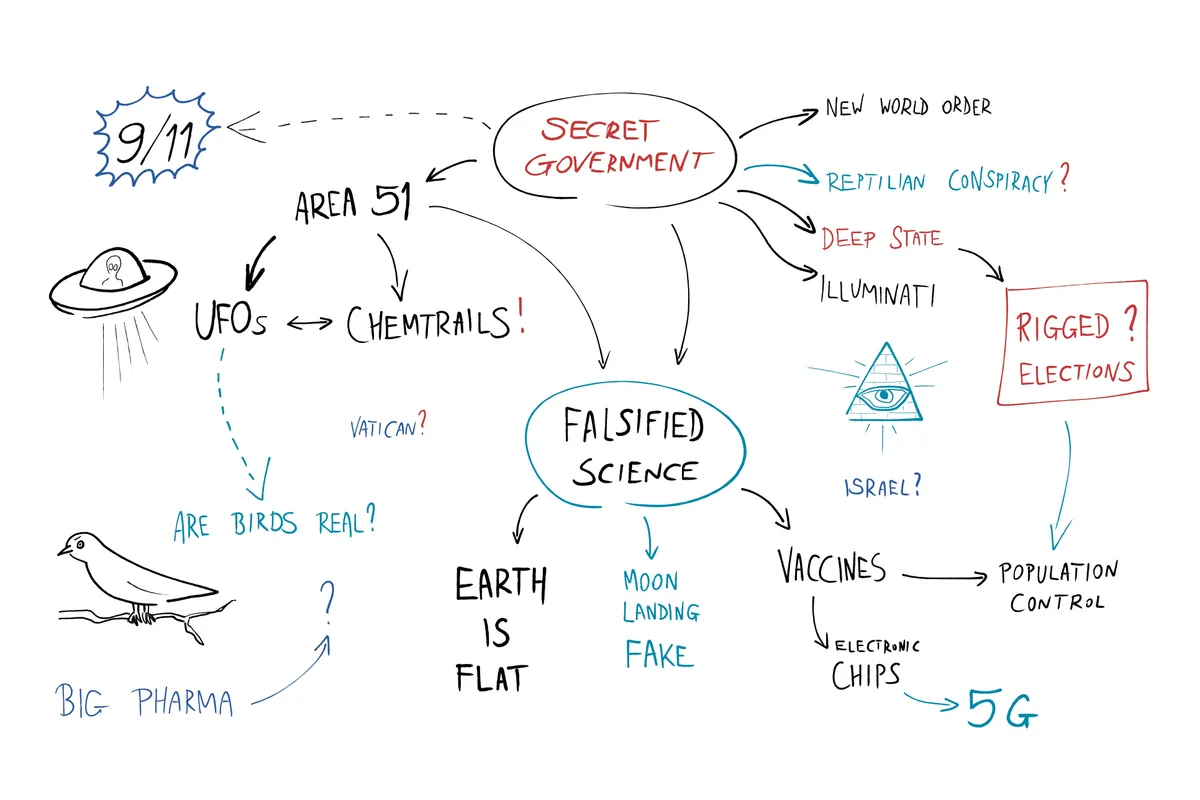 9/11
SECRET
GOVERNMENT
NEW WORLD ORDER
REPTILIAN CONSPIRACY?
DEEP STATE
ILLUMINATI
AREA 51
UFOs
CHEMTRAILS!
RIGGED ?
ELECTIONS
VATICAN?
FALSIFIED
SCIENCE
ISRAEL?
ARE BIRDS REAL?
EARTH
IS
FLAT
MOON
LANDING
FAKE
VACCINES
POPULATION
CONTROL
ELECTRONIC
CHIPS
5G
?
BIG PHARMA